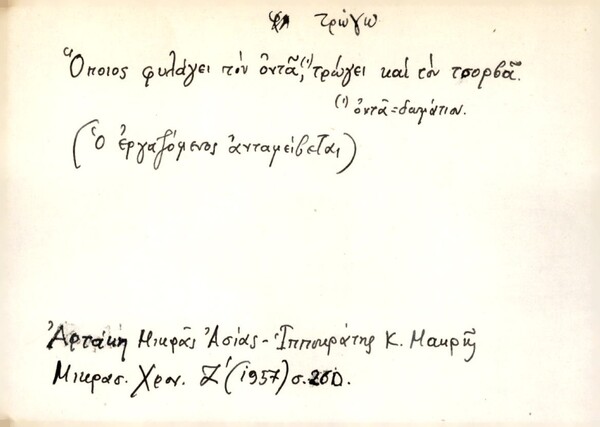 τρώγω
Ὅποιος φυλάγει τὸν ὀντᾶ,⁽¹⁾ τρώγει καὶ τὸν τσορβᾶ.
(¹) ὀντᾶ = δωμάτιον.
(Ὁ ἐργαζόμενος ἀνταμείβεται)
Ἀρτάκη Μικρᾶς Ἀσίας - Ἱπποκράτης Κ. Μακρῆς
Μικρασ. Χρον. Ζ΄ (1957) σ.